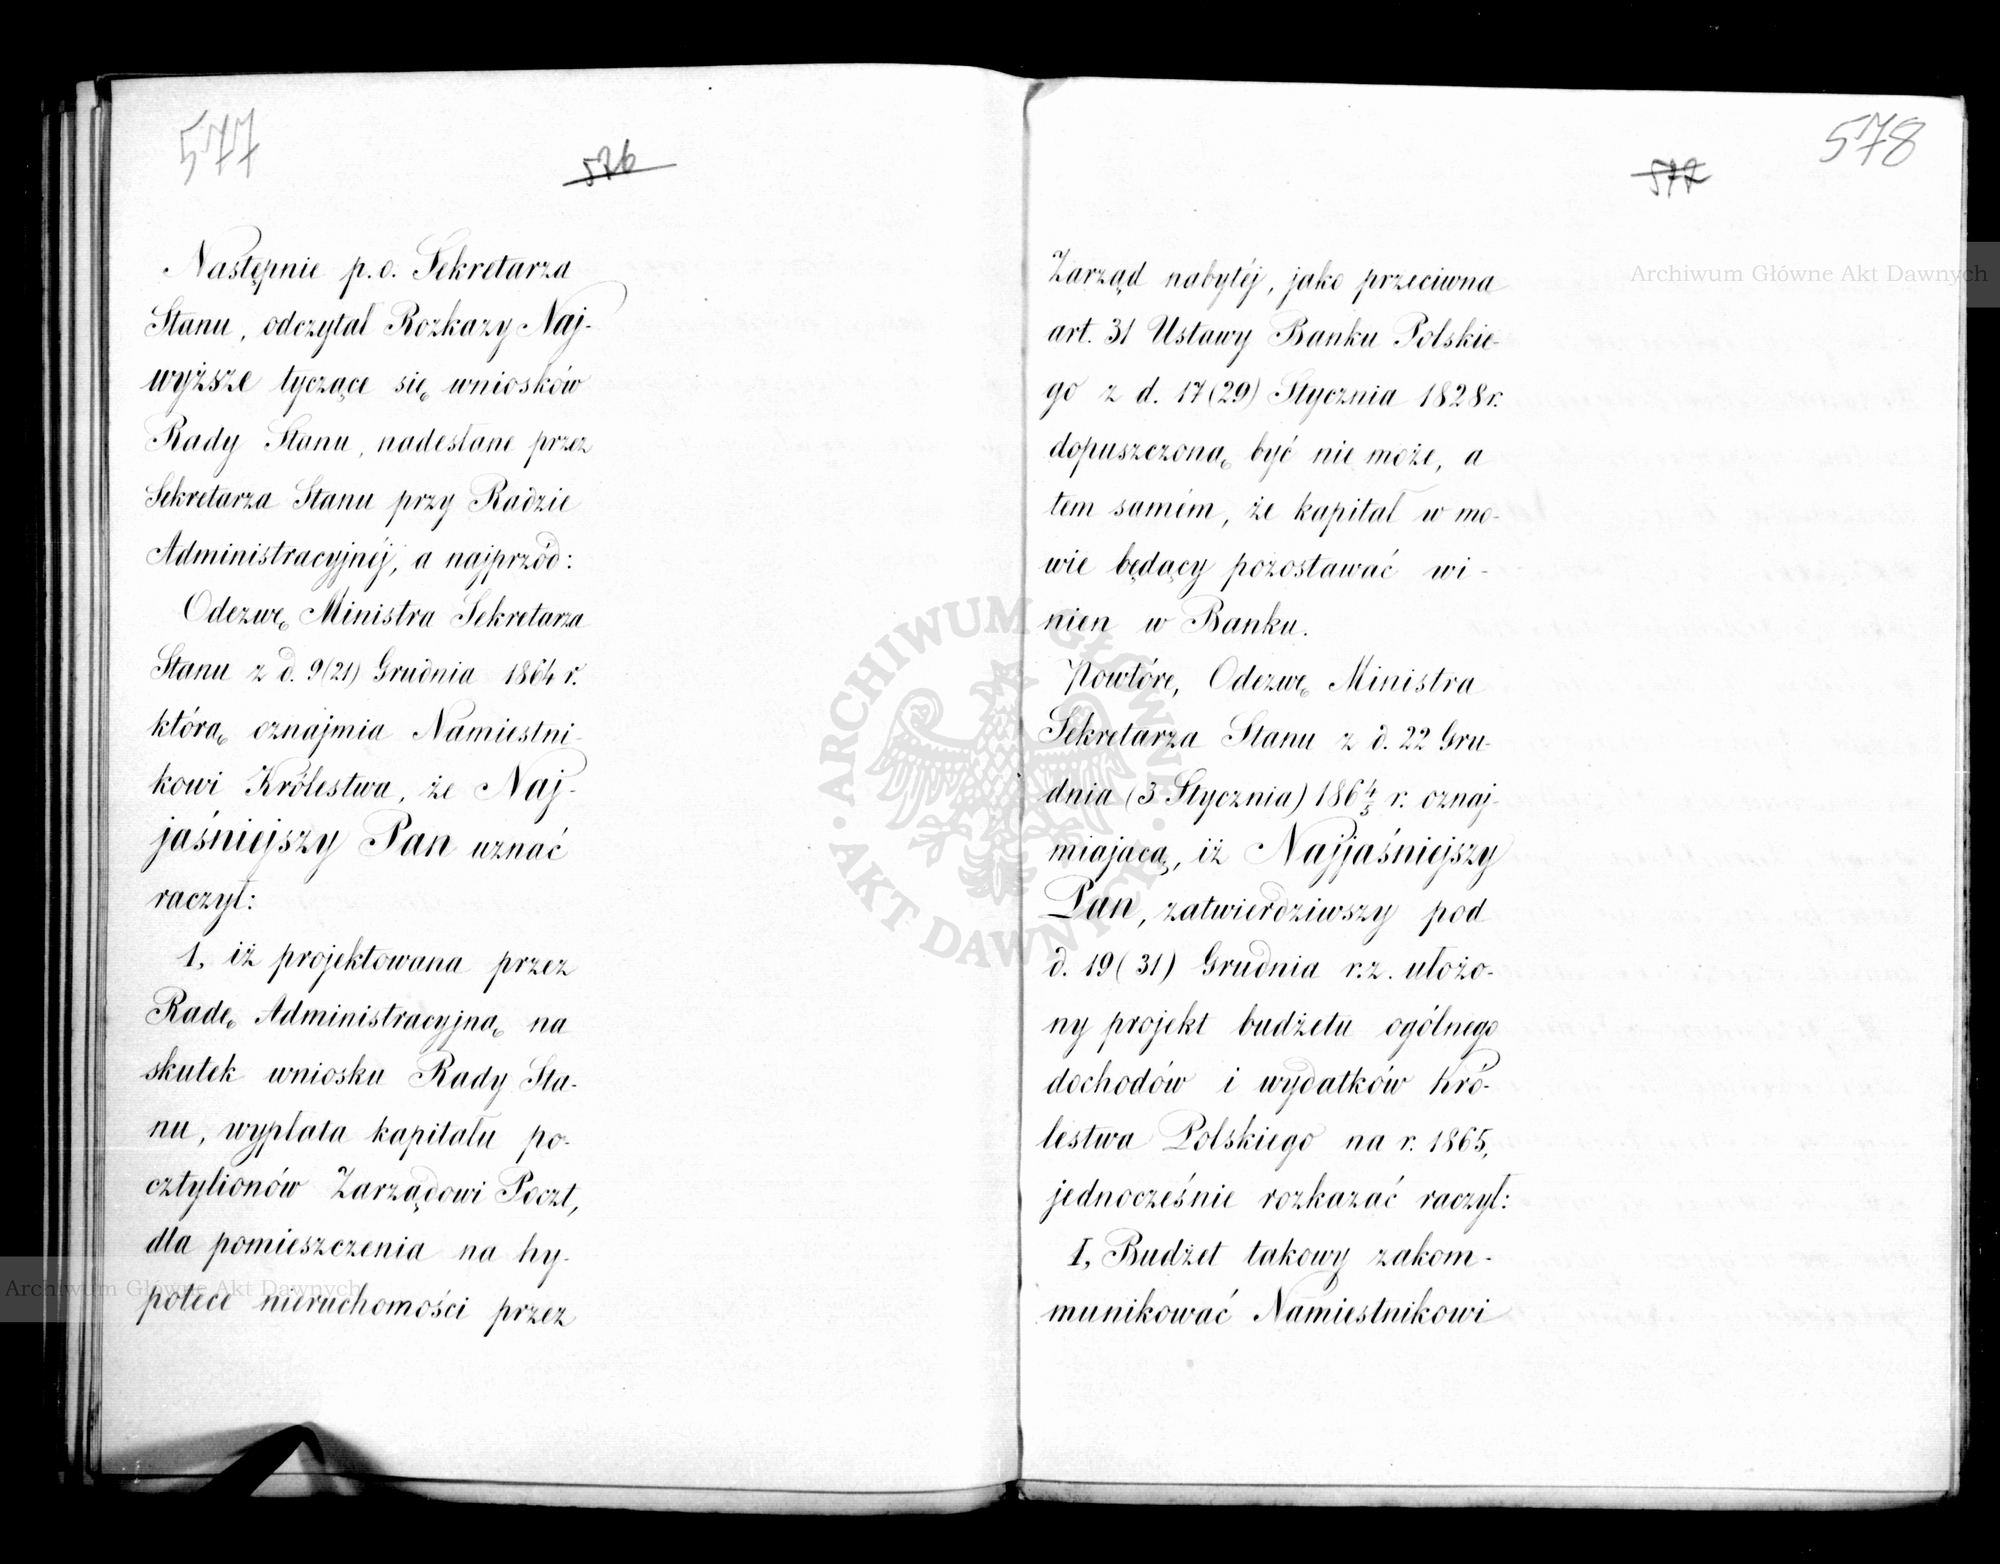 577
576
Następnie p.o. Sekretarza
Stanu, odczytał Rozkazy Naj-
wyższe tyczące się wniosków
Rady Stanu, nadesłane przez
Sekretarza Stanu przy Radzie
Administracyjnéj, a najprzód:
Odezwę Ministra Sekretarza
Stanu z d. 9(21) Grudnia 1864 r.
którą oznajmia Namiestni-
kowi Królestwa, że Naj-
jaśniejszy Pan uznać
raczył:
1, iż projektowana przez
Radę Administracyjną na
skutek wniosku Rady Sta-
nu, wypłata kapitału po-
cztylionów Zarządowi Poczt,
dla pomieszczenia na hy-
potece nieruchomości przez
578
577
Zarząd nabytéj, jako przeciwna
art. 31 Ustawy Banku Polskie-
go z d. 17(29) Stycznia 1828 r.
dopuszczoną być nie może, a
tem samém, że kapitał w mo-
wie będący pozostawać wi-
nien w Banku.
Powtóre, Odezwę Ministra
Sekretarza Stanu z d. 22 Gru-
dnia (3 Stycznia) 1864/5 r. oznaj-
miającą, iż Najjaśniejszy
Pan, zatwierdziwszy pod
d. 19(31) Grudnia r.z. ułożo-
ny projekt budżetu ogólnego
dochodów i wydatków Kró-
lestwa Polskiego na r. 1865,
jednocześnie rozkazać raczył:
I, Budżet takowy zakom-
munikować Namiestnikowi
Archiwum Główne Akt Dawnych
Archiwum Główne Akt Dawnych
ARCHIWUM GŁÓWNE · AKT DAWNYCH ·